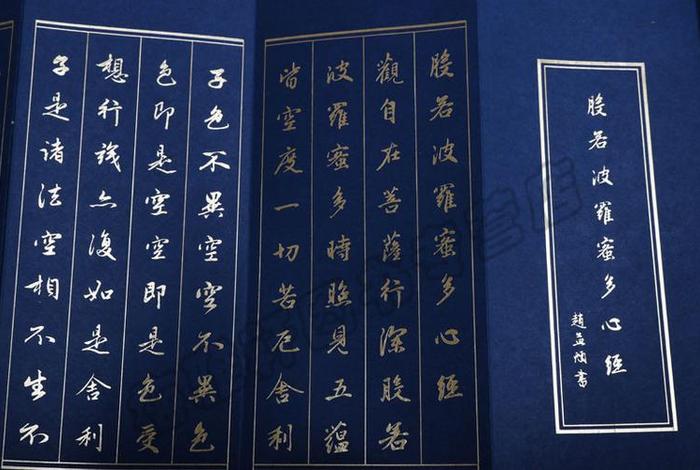 般若波羅蜜多心經
趙孟頫書
般若波羅蜜多心經
觀自在菩薩行深般若
波羅蜜多時照見五蘊
皆空度一切苦厄舍利
子色不異空空不異色
色即是空空即是色受
想行識亦復如是舍利
子是諸法空相不生不